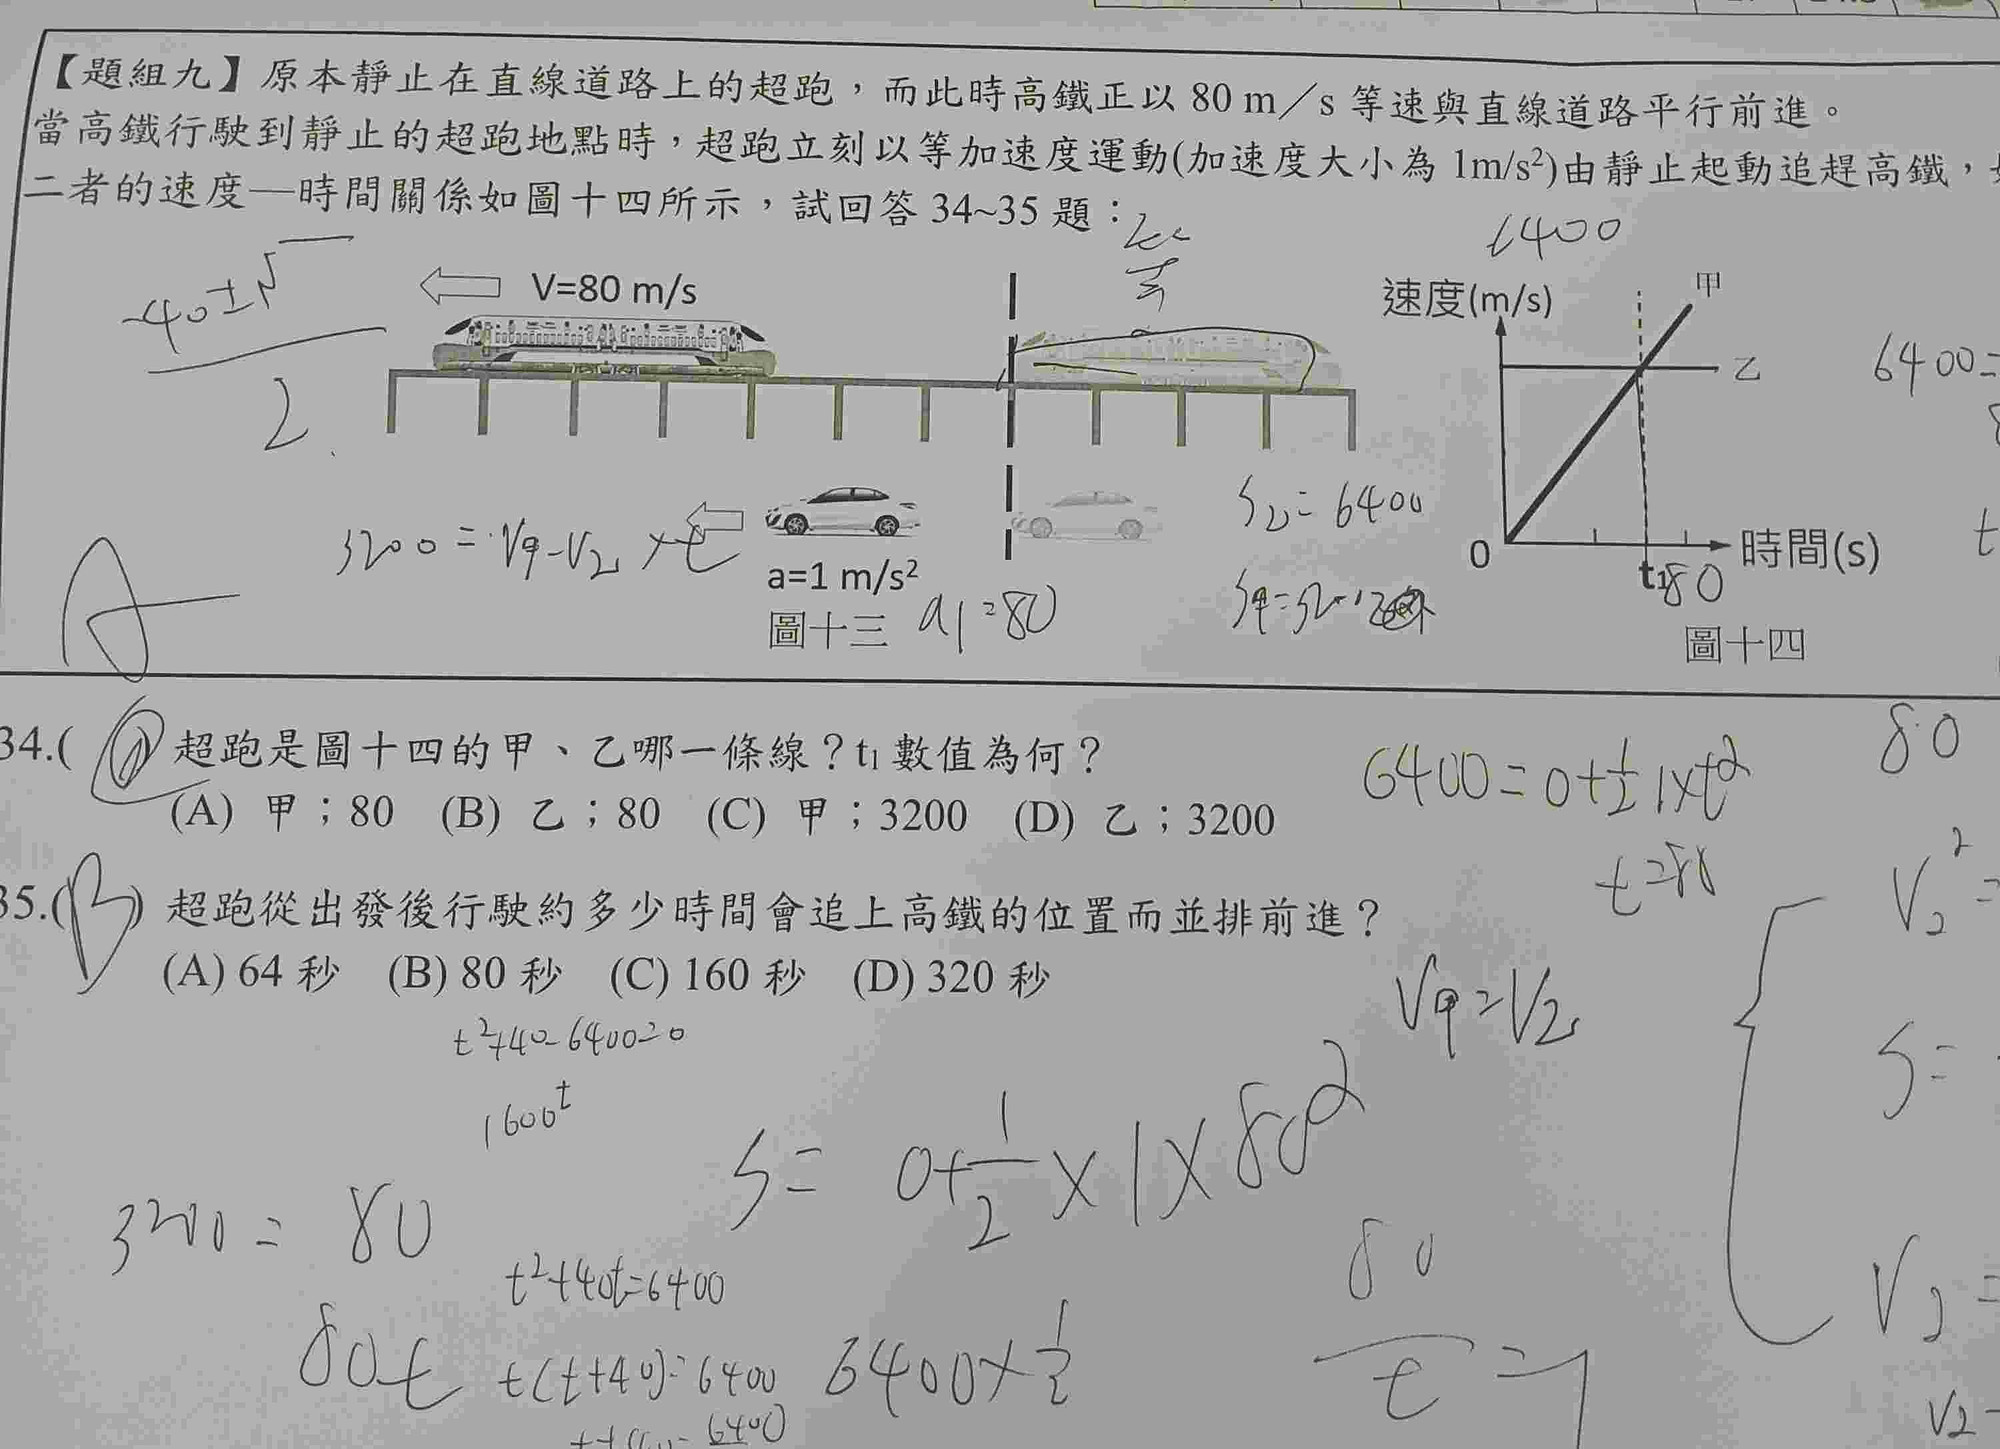 【題組九】原本靜止在直線道路上的超跑,而此時高鐵正以 80 m/s 等速與直線道路平行前進。
當高鐵行駛到靜止的超跑地點時,超跑立刻以等加速度運動(加速度大小為 1m/s²)由靜止起動追趕高鐵,
二者的速度—時間關係如圖十四所示,試回答 34~35 題:
6400
-40±√
2
V=80 m/s
速度(m/s)
甲
乙
6400=
S乙=6400
3200=V甲-V乙×t
a=1 m/s²
0
t₁80
時間(s)
t
圖十三
a1=80
圖十四
A
34.( ) 超跑是圖十四的甲、乙哪一條線?t₁ 數值為何?
(A) 甲;80 (B) 乙;80 (C) 甲;3200 (D) 乙;3200
6400=0+1/2 1×t²
80
t=80
35.(B) 超跑從出發後行駛約多少時間會追上高鐵的位置而並排前進?
(A) 64 秒 (B) 80 秒 (C) 160 秒 (D) 320 秒
V甲=V乙
t²+40-6400=0
1600t
S=0+1/2×1×80²
S=
3200=80
t²+40t=6400
80t
t(t+40)=6400
6400×1/2
80/t=1